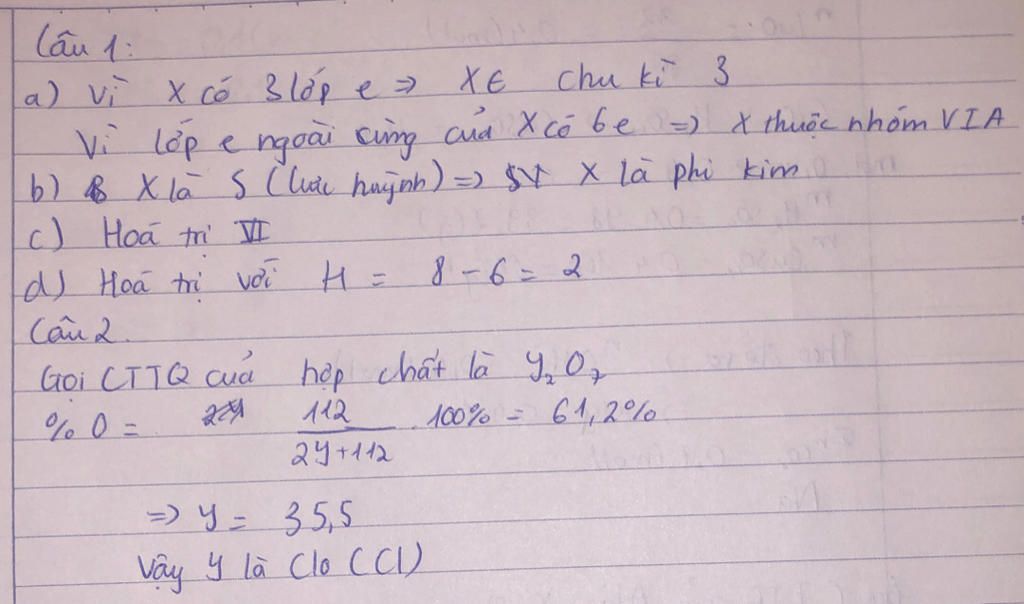 Câu 1:
a) Vì X có 3 lớp e => X ∈ chu kì 3
Vì lớp e ngoài cùng của X có 6e => X thuộc nhóm VIA
b) X là S (lưu huỳnh) => X là phi kim
c) Hoá trị VI
d) Hoá trị với H = 8 - 6 = 2
Câu 2.
Gọi CTTQ của hợp chất là Y₂O₇
% O = 112 / (2Y+112) . 100% = 61,2%
=> Y = 35,5
Vậy Y là Clo (Cl)